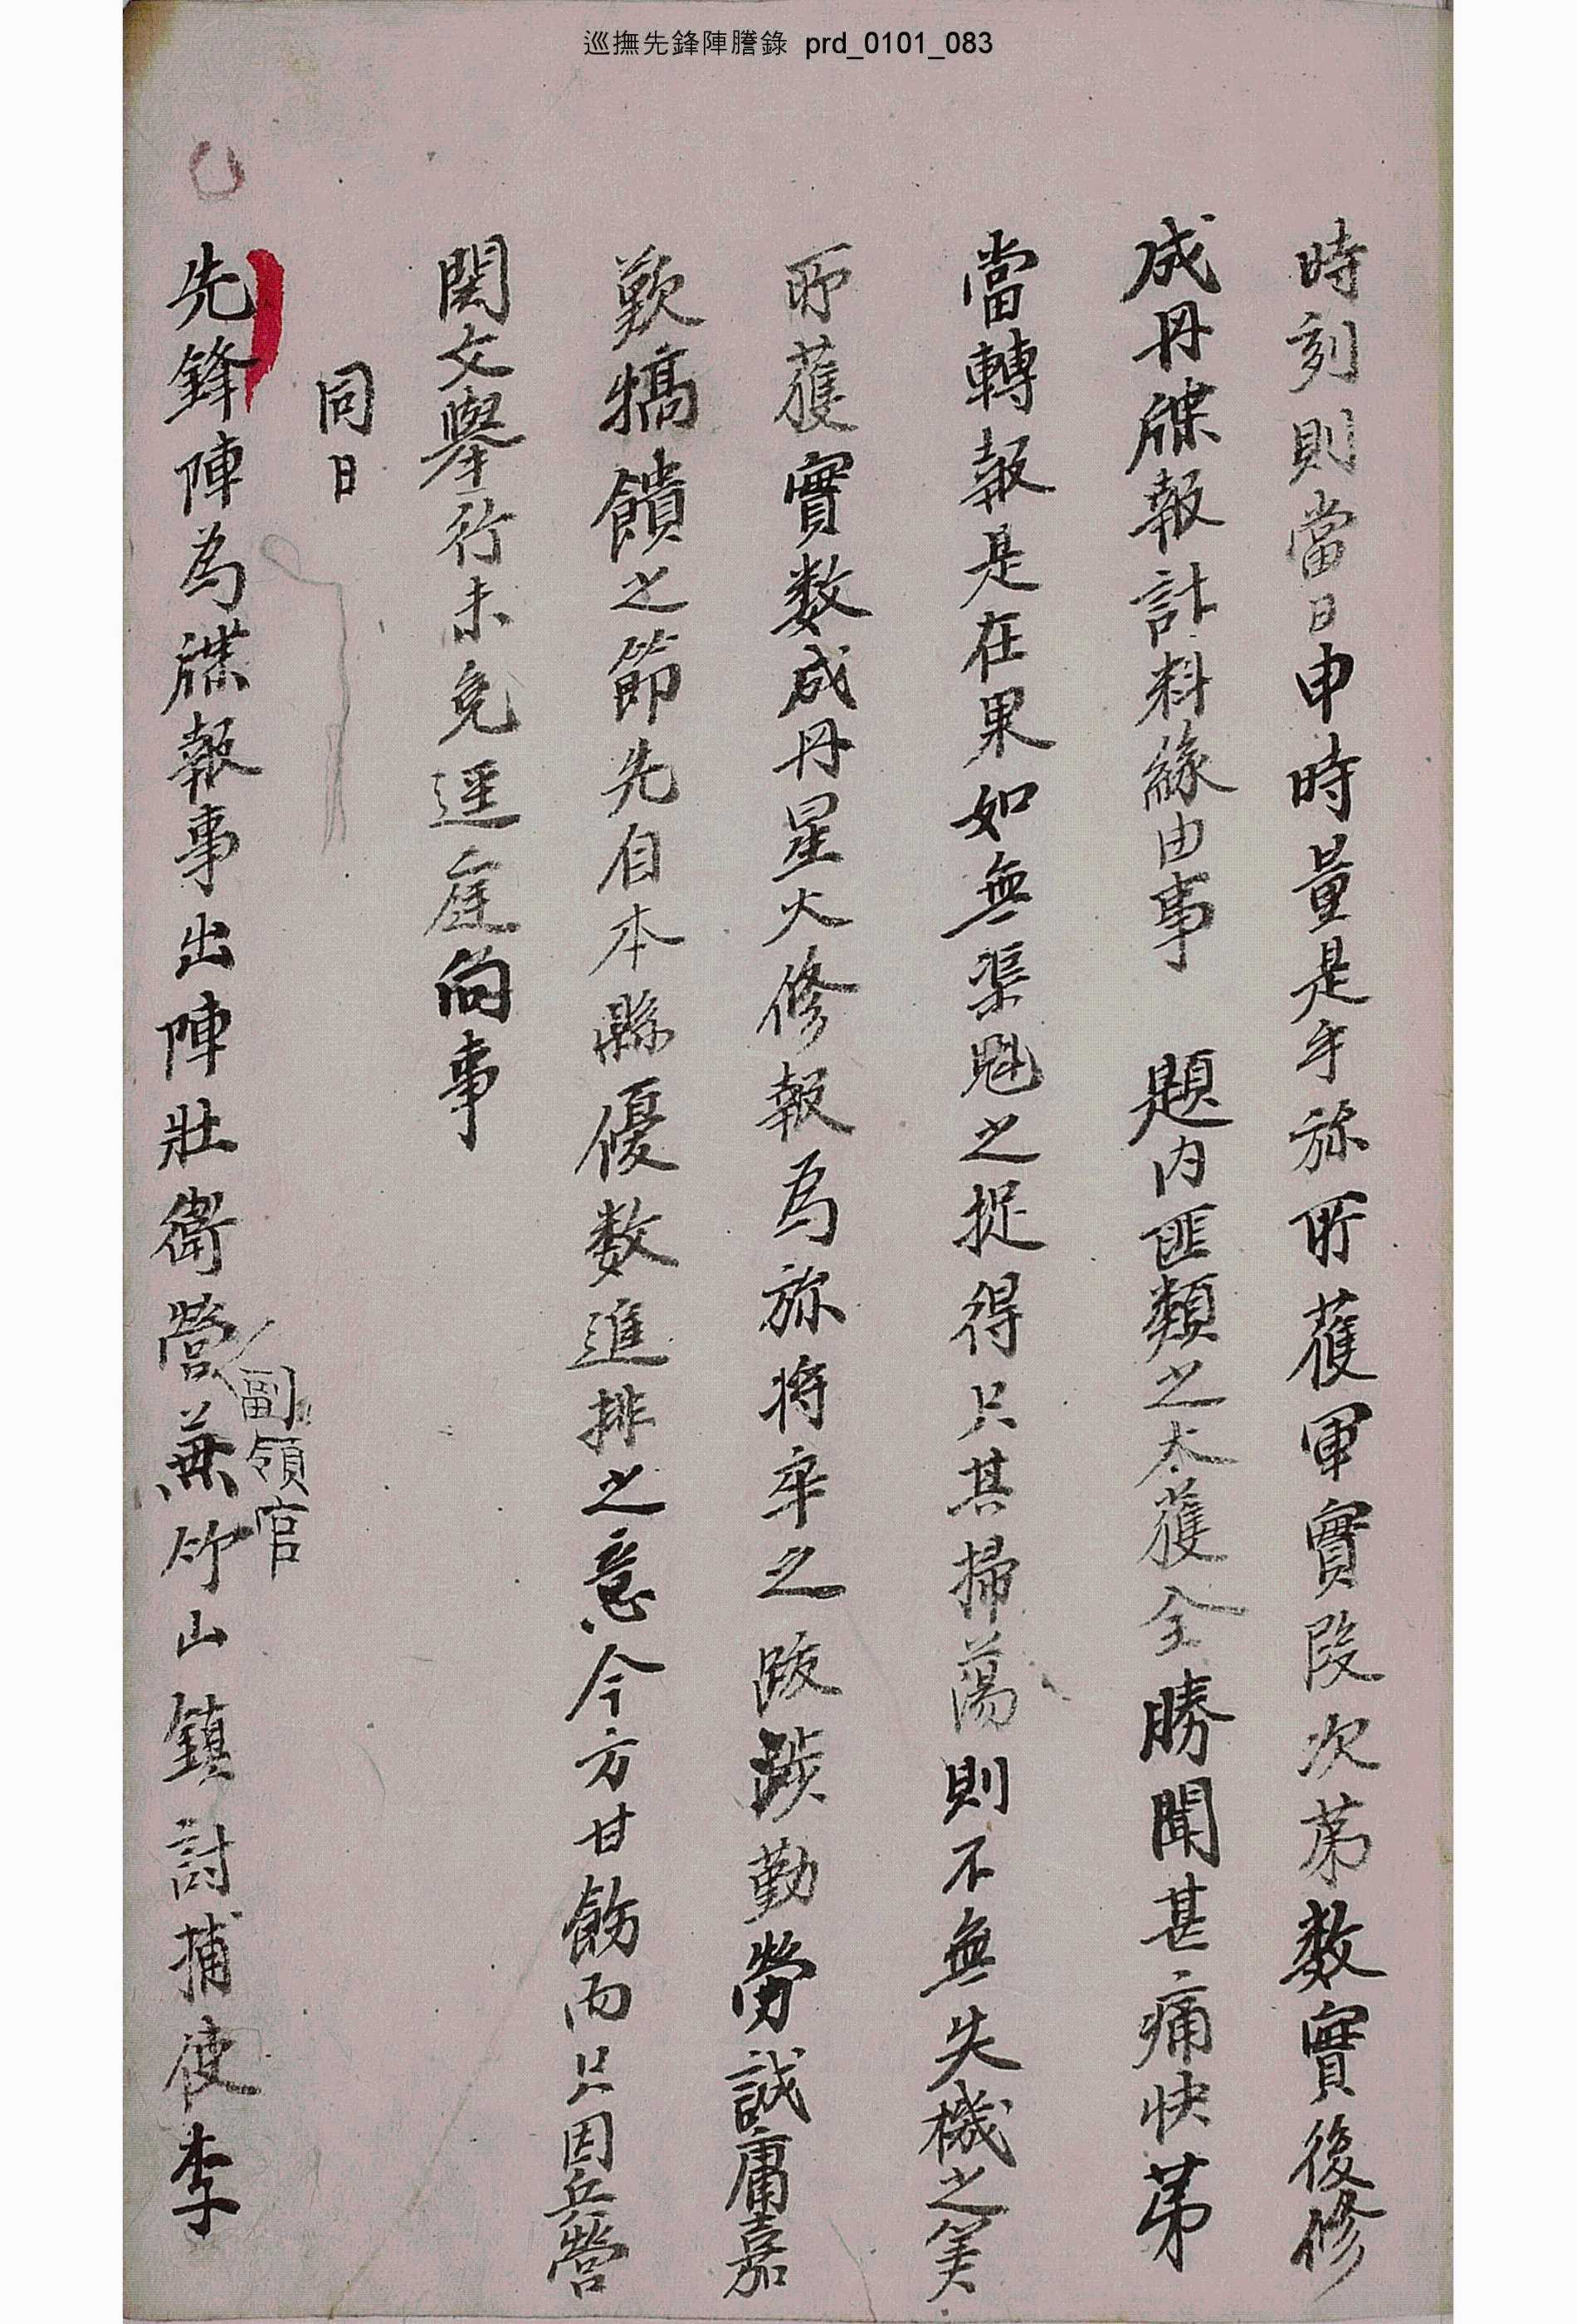 巡撫先鋒陣謄錄 prd_0101_083
時刻則當日申時量是乎旀所獲軍實段次苐数實後修
成冊牒報計料緣由事 題內匪類之大獲全勝聞甚痛快苐
當轉報是在果如無渠魁之捉得只其掃蕩則不無失機之笑
所獲實数成冊星火修報爲旀將卒之跋涉勤勞誠庸嘉
歎犒饋之節先自本縣優数進排之意今方甘飭而只因兵營
関文擧行未免逕庭向事
同日
先鋒陣爲牒報事出陣壯衛營副領官兼竹山鎮討捕使李